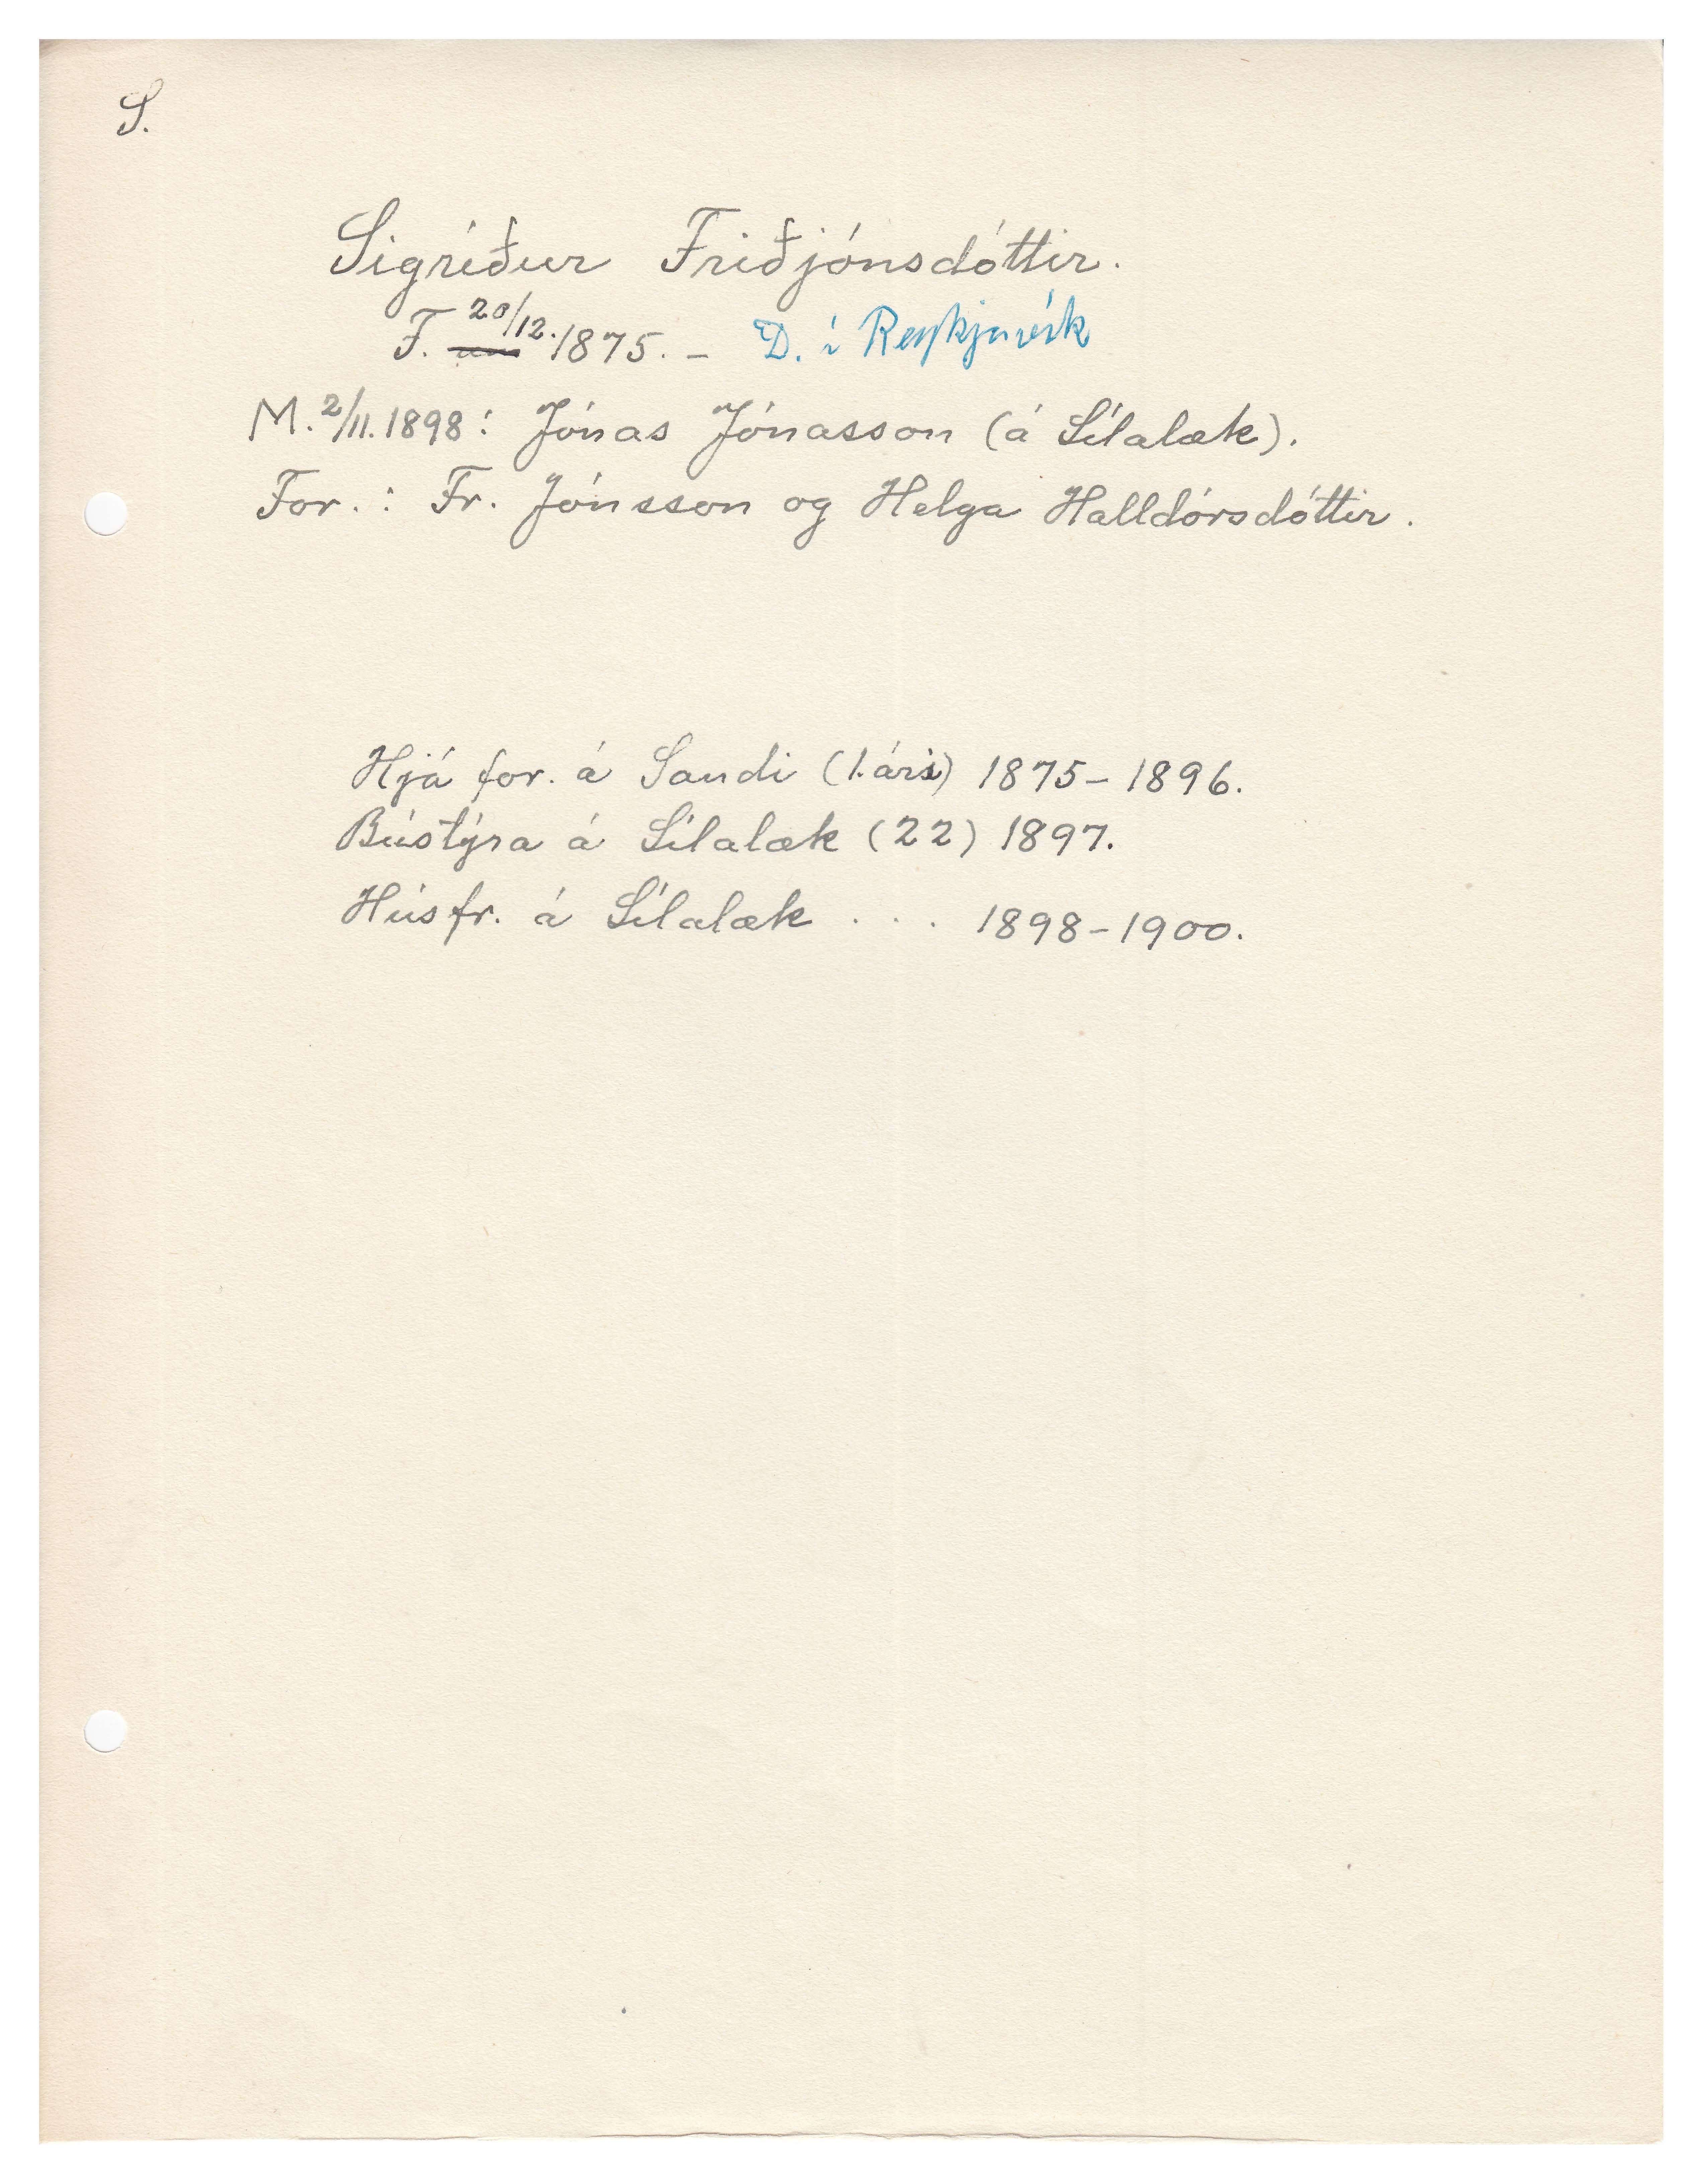 S.
Sigríður Friðjónsdóttir.
F. 20/12. 1875. – D. í Reykjavík
M. 2/11. 1898: Jónas Jónasson (á Sílalæk).
For.: Fr. Jónsson og Helga Halldórsdóttir.
Hjá for. á Sandi (1. ári) 1875–1896.
Bústýra á Sílalæk (22) 1897.
Húsfr. á Sílalæk . . . 1898–1900.